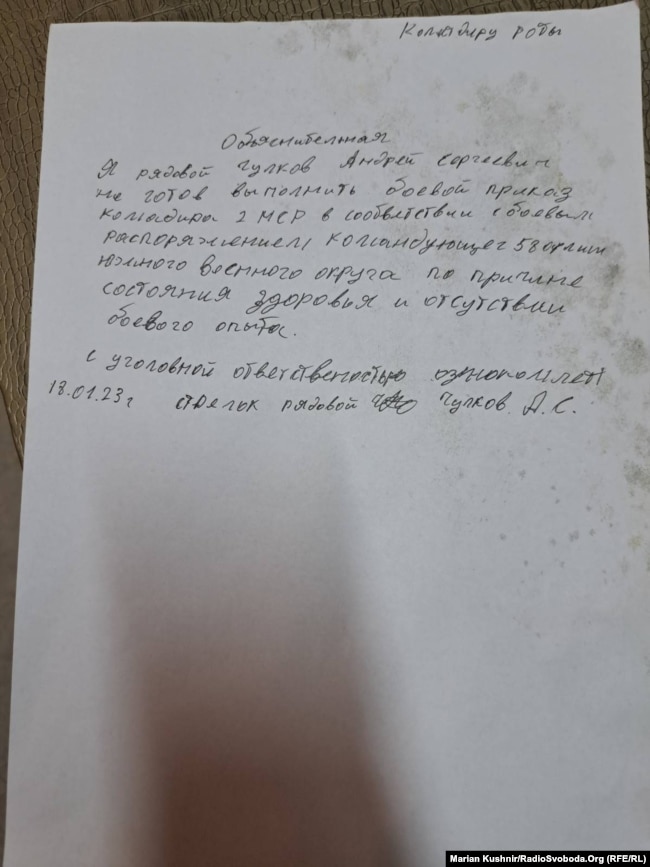 Командиру роты
Объяснительная
Я рядовой Чулков Андрей Сергеевич
не готов выполнить боевой приказ
командира 2 МСР в соответствии с боевым
распоряжением командующег 58 армии
южного военного округа по причине
состояния здоровья и отсутствии
боевого опыта.
с уголовной ответственостью ознокомлен
18.01.23г стрелок рядовой Чулков А.С.
Marian Kushnir/RadioSvoboda.Org (RFE/RL)